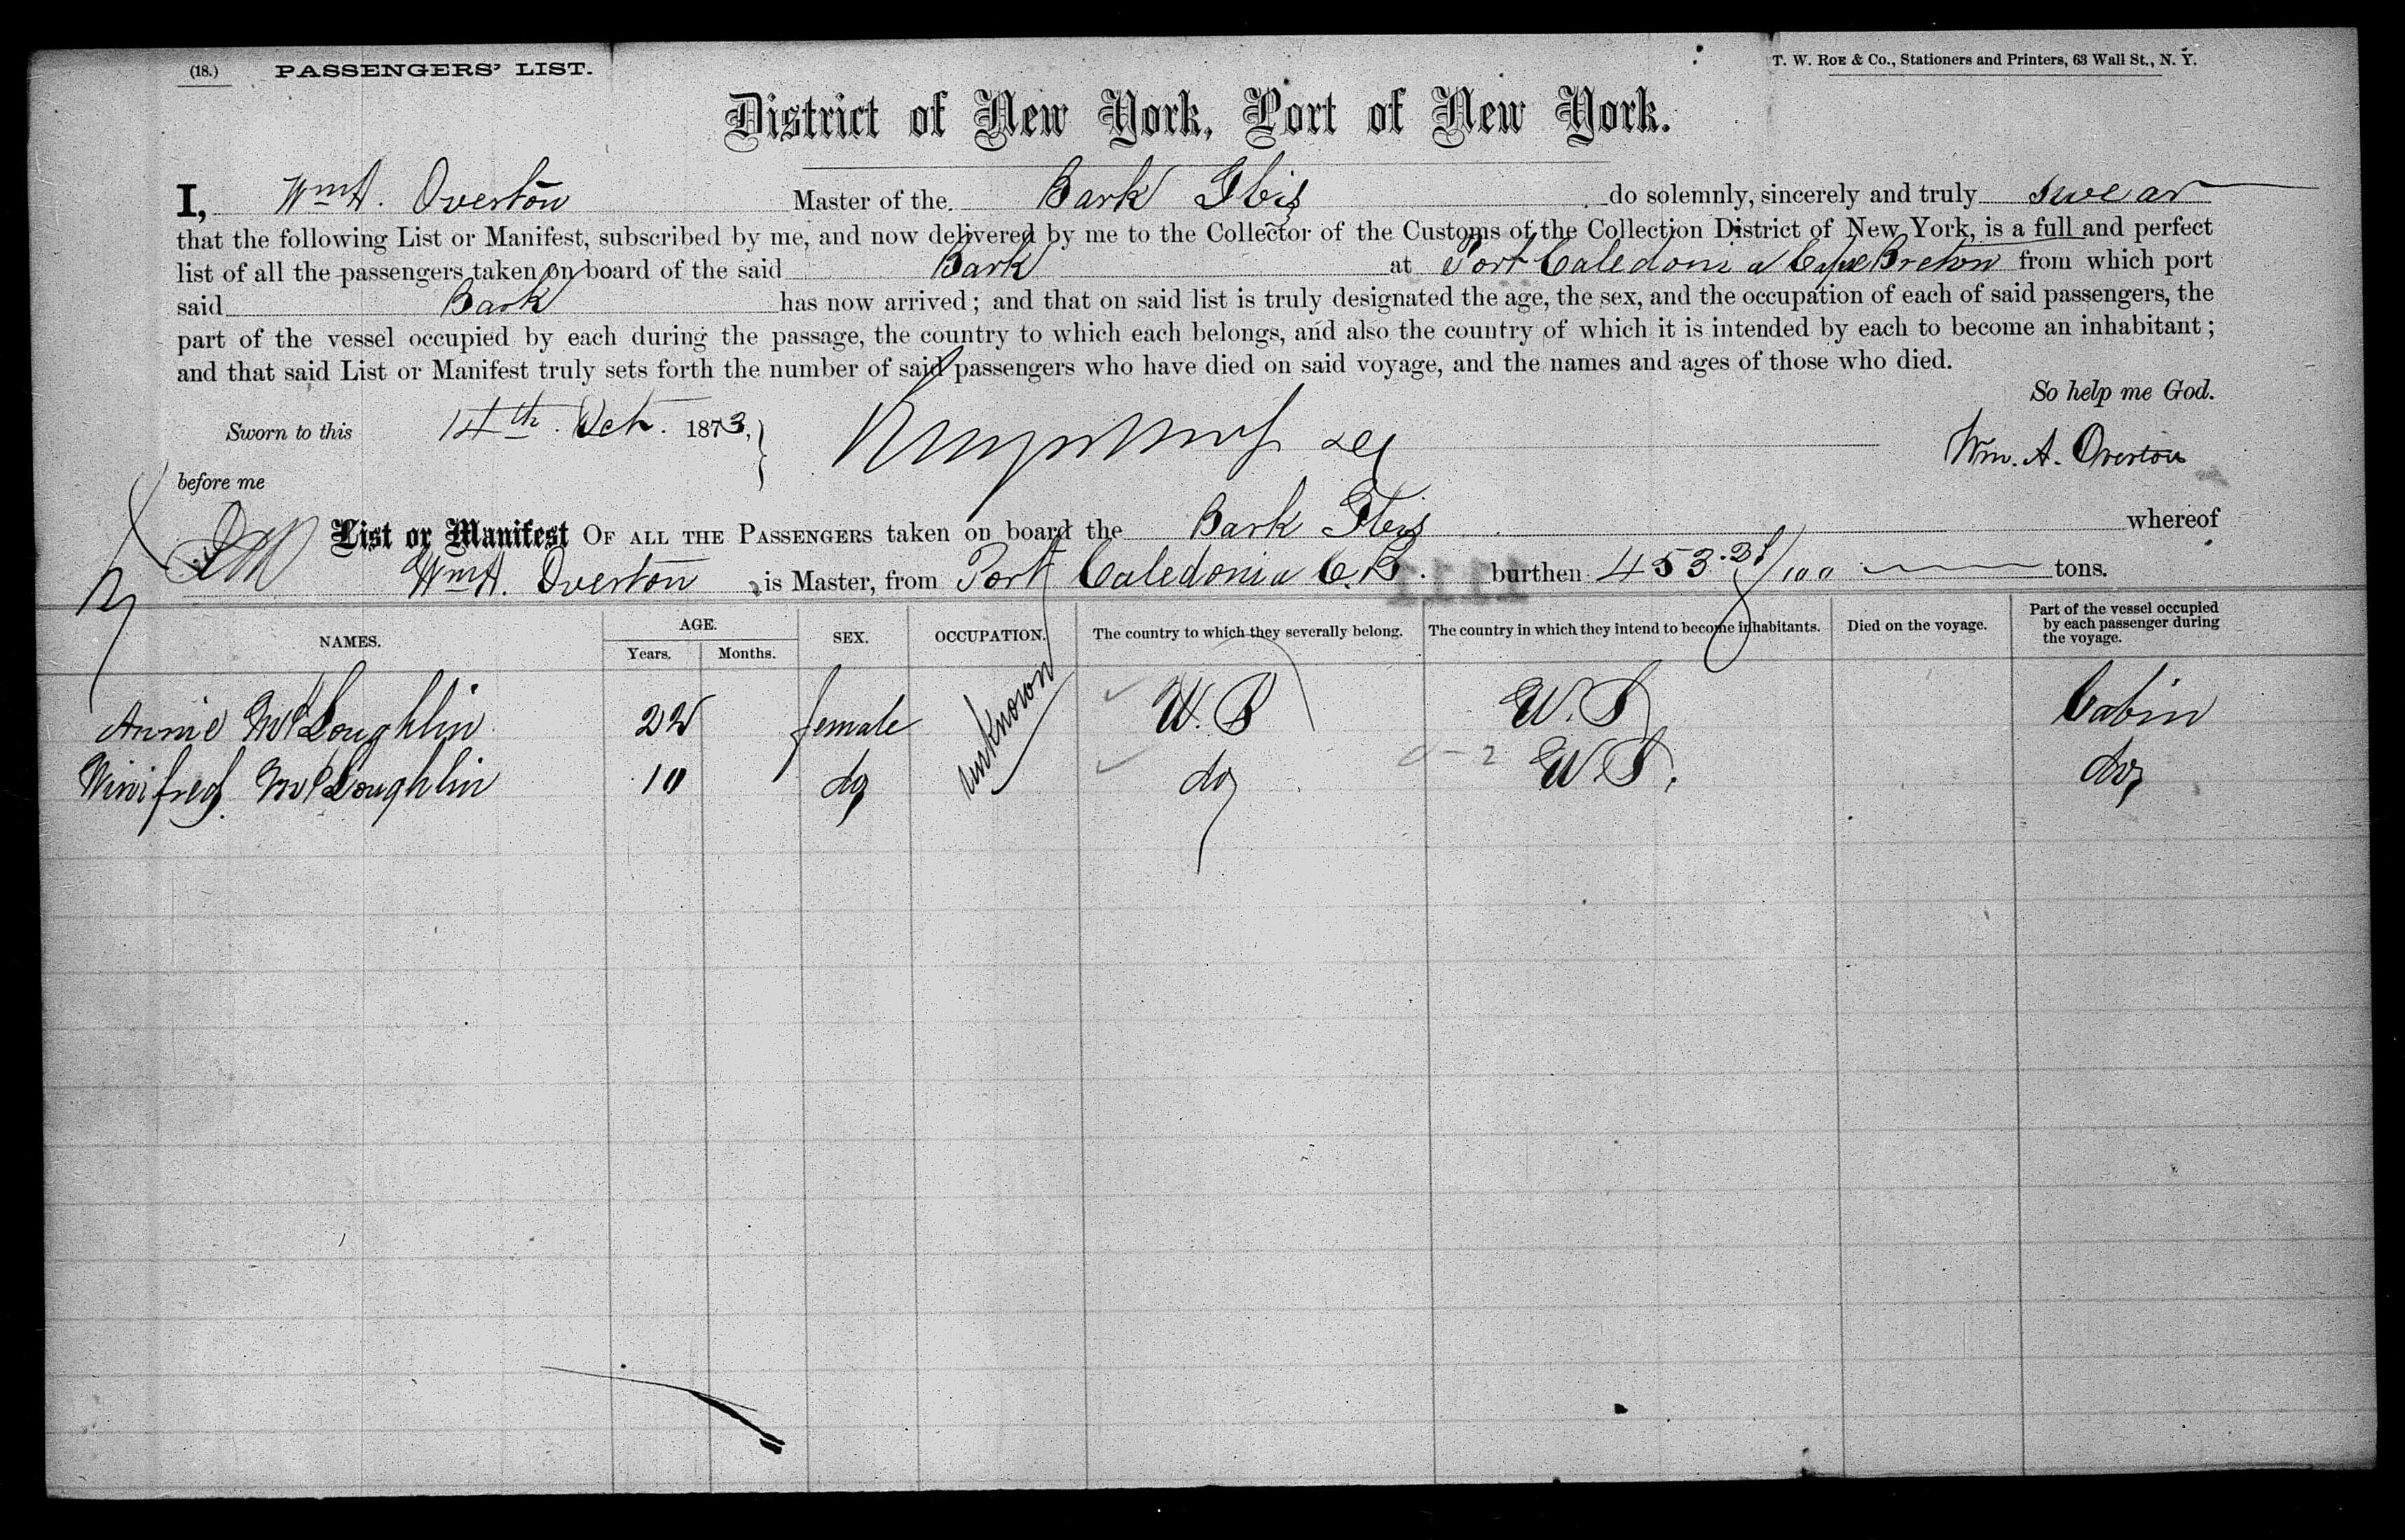 (18.) PASSENGERS' LIST. T. W. ROE & Co., Stationers and Printers, 63 Wall St., N. Y.
District of New York, Port of New York.
I, Wm A. Overton Master of the Bark Ibis do solemnly, sincerely and truly swear
that the following List or Manifest, subscribed by me, and now delivered by me to the Collector of the Customs of the Collection District of New York, is a full and perfect
list of all the passengers taken on board of the said Bark at Port Caledonia Cape Breton from which port
said Bark has now arrived; and that on said list is truly designated the age, the sex, and the occupation of each of said passengers, the
part of the vessel occupied by each during the passage, the country to which each belongs, and also the country of which it is intended by each to become an inhabitant;
and that said List or Manifest truly sets forth the number of said passengers who have died on said voyage, and the names and ages of those who died.
So help me God.
Sworn to this 14th Oct. 1873,
Wm. A. Overton
before me
List or Manifest OF ALL THE PASSENGERS taken on board the Bark Ibis whereof
Wm A. Overton is Master, from Port Caledonia C.B. burthen 453 /100 tons.
NAMES. AGE. Years. Months. SEX. OCCUPATION. The country to which they severally belong. The country in which they intend to become inhabitants. Died on the voyage. Part of the vessel occupied by each passenger during the voyage.
Annie McLoughlin 22 female unknown Cabin
Winifred McLoughlin 10 do do do